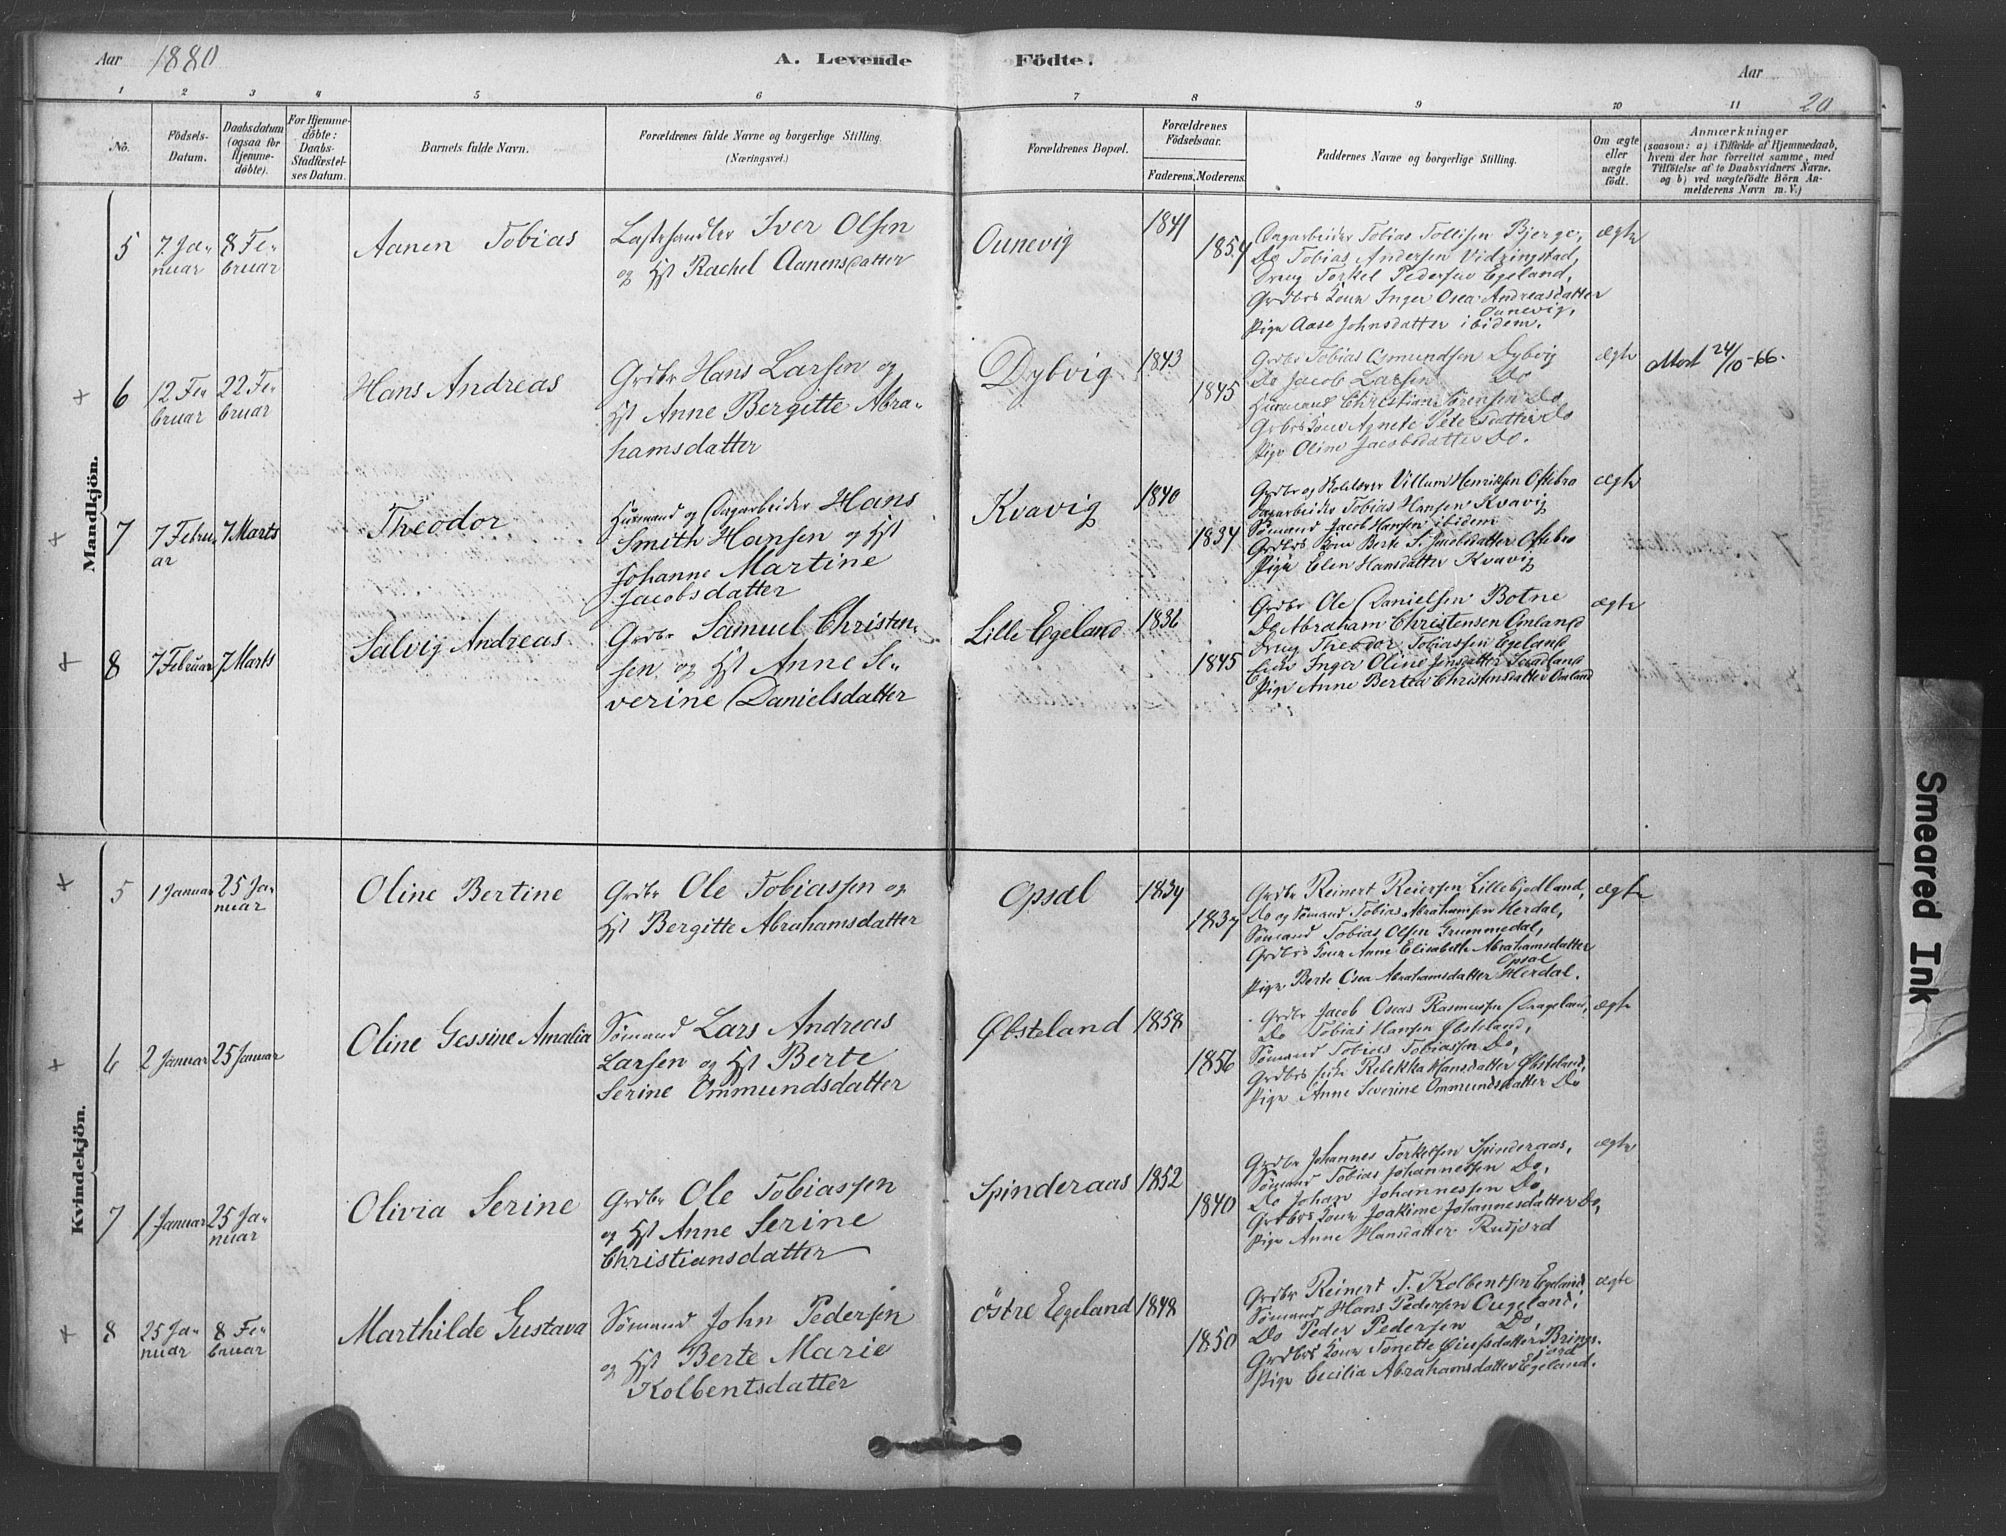 Aar 1880
A. Levende Födte.
Aar
20
1 2 3 4 5 6 7 8 9 10 11
No.
Födsels-
Datum.
Daabsdatum
(ogsaa for
Hjemme-
döbte).
For Hjemme-
döbte:
Daabs-
Stadfæstel-
ses Datum.
Barnets fulde Navn.
Forældrenes fulde Navne og borgerlige Stilling.
(Næringsvei.)
Forældrenes Bopæl.
Forældrenes
Födselsaar.
Faderens. Moderens.
Faddernes Navne og borgerlige Stilling.
Om ægte
eller
uægte
födt.
Anmærkninger
(saasom: a) i Tilfælde af Hjemmedaab,
hvem der har forrettet samme, med
Tilföielse af to Daabsvidners Navne,
og b) ved uægtefödte Börn An-
melderens Navn m. V.)
Mandkjön.
5
7. Ja-
nuar
8 Fe-
bruar
Aanen Tobias
Lastehandler Iver Olsen
og Hst Rachel Aanensdatter
Ounevig
1841
1854
Dagarbeider Tobias Tollisen Bjerge,
Do Tobias Andersen Vidringstad,
Drug Torkel Pedersen Egeland,
Grdbrs Kone Inger Osea Andreasdatter
Ounevig,
Pige Aase Johnsdatter ibidem.
ægte
+ 6
12 Fe-
bruar
22 Fe-
bruar
Hans Andreas
Grdbr Hans Larsen og
Hst Anne Bergitte Abra-
hamsdatter
Dybvig
1843
1845
Grdbr Tobias Osmundsen Dybvig
Do Jacob Larsen Do
Husmand Christian Sörensen Do
Grdbrs Kone Agnete Petersdatter Do
Pige Oline Jacobsdatter Do.
ægte
Mort 24/10-66.
+ 7
7 Febru-
ar
7 Marts
Theodor
Husmand og Dagarbeider Hans
Smith Hansen og Hst
Johanne Martine
Jacobsdatter
Kvavig
1840
1834
Grdbr og Skolelærer Villum Henriksen Oftebro
Dagarbeider Tobias Hansen Kvavig
Sömand Jacob Hansen ibidem
Grdbrs Kone Berte S. Jacobsdatter Oftebro
Pige Elen Hansdatter Kvavig
ægte
+ 8
7 Februar
7 Marts
Salvig Andreas
Grdbr Samuel Christen-
sen og Hst Anne Se-
verine Danielsdatter
Lille Egeland
1836
1845
Grdbr Ole Danielsen Botne
Do Abraham Christensen Omland
Drug Theodor Tobiassen Egeland
Enke Inger Oline Jensdatter
Pige Anne Bertea Christensdatter Omland
ægte
Kvindekjön.
+ 5
1 Januar
25 Ja-
nuar
Oline Bertine
Grdbr Ole Tobiassen og
Hst Bergitte Abrahamsdatter
Opsal
1834
1837
Grdbr Reinert Reiersen Lillebjodland,
Do og Sömand Tobias Abrahamsen Herdal,
Sömand Tobias Olsen Grummedal,
Grdbrs Kone Anne Elisabeth Abrahamsdatter
Opsal
Pige Berte Osea Abrahamsdatter Herdal.
ægte
+ 6
2 Januar
25 Januar
Oline Gessine Amalia
Sömand Lars Andreas
Larsen og Hst Berte
Serine Ommundsdatter
Øbsteland
1858
1856
Grdbr Jacob Oseas Rasmussen Drageland,
Do Tobias Hansen Øbsteland,
Sömand Tobias Tobiassen Do,
Grdbrs Enke Rebekka Hansdatter Øbsteland,
Pige Anne Severine Ommundsdatter Do
ægte
7
1 Januar
25 Ja-
nuar
Olivia Serine
Grdbr Ole Tobiassen
og Hst Anne Serine
Christiansdatter
Spinderaas
1852
1840
Grdbr Johannes Torkelsen Spinderaas,
Sömand Tobias Johannessen Do,
Do Johan Johannessen Do,
Grdbrs Kone Joakime Johannesdatter Do,
Pige Anne Hansdatter Rusjord
ægte
+ 8
25 Ja-
nuar
8 Fe-
bruar
Marthilde Gustava
Sömand John Pedersen
og Hst Berte Marie
Kolbentsdatter
östre Egeland
1848
1850
Grdbr Reinert T. Kolbentsen Egeland,
Sömand Hans Pedersen Ougeland,
Do Peder Pedersen Do,
Grdbrs Kone Tonette
Pige Cecilia Abrahamsdatter Egeland.
ægte
Smeared Ink